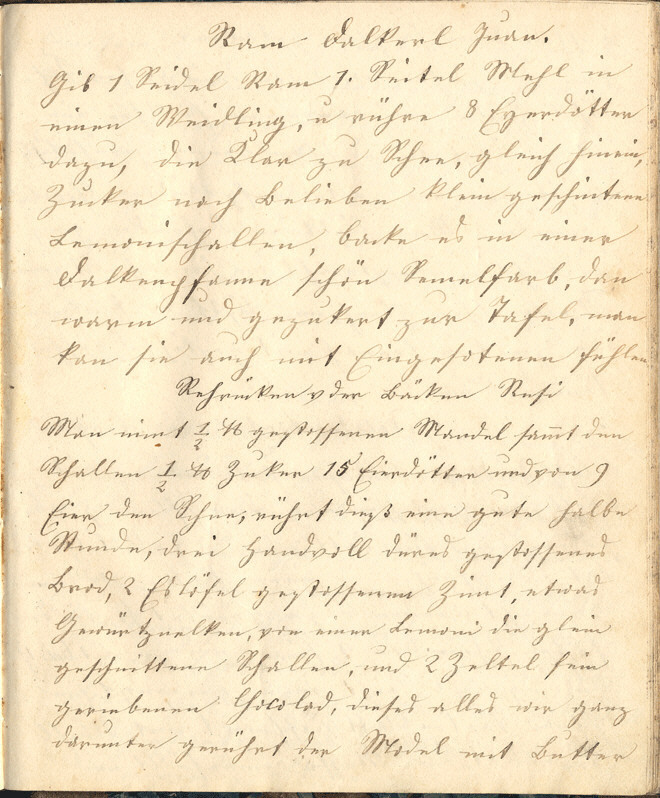 Ram Dalkerl Juan.
Gib 1 Seidel Ram 1. Seitel Mehl in
einen Weidling, u rühre 8 Eyerdötter
dazu, die Klar zu Schne, gleich hinein,
Zucker nach Belieben klein geschnitene
Lemonischallen, backe es in einer
Dalkenpfanne schön Semelfarb, dan
warm und gezukert zur Tafel, man
kan sie auch mit Eingesotenen fühlen
Rehrücken v der Bäcken Resi
Man nimt 1/2 ℔ gestossenen Mandel sam̅t den
Schallen 1/2 ℔ Zuker 15 Eierdötter und von 9
Eier den Schne, rührt dieß eine gute halbe
Stunde, drei Handvoll düres gestossenes
Brod, 2 Eslöfel gestossenen Zimt, etwas
Gewürtznelken, von einer Lemoni die glein
geschnittene Schallen, und 2 Zeltel fein
geriebenen Chocolad, dieses alles wir ganz
darunter gerührt der Model mit Butter